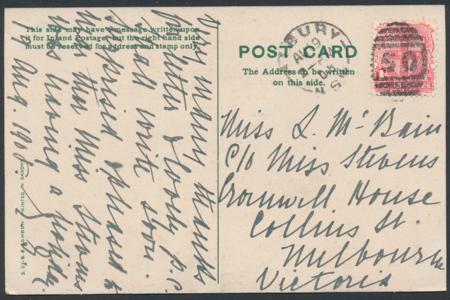 This side may have a message written upon
it for Inland Postage but the right hand side
must be reserved for address and stamp only.
Very many thanks
for letter & lovely p.c.
will write soon.
surprised & pleased to
hear Miss Stevens
was having a holiday
17 Aug. 1905
POST CARD
The Address to be written
on this side.
BURY
AU 9
N.S.
Miss L. McBain
C/o Miss Stevens
Cromwell House
Collins St.
Melbourne
Victoria